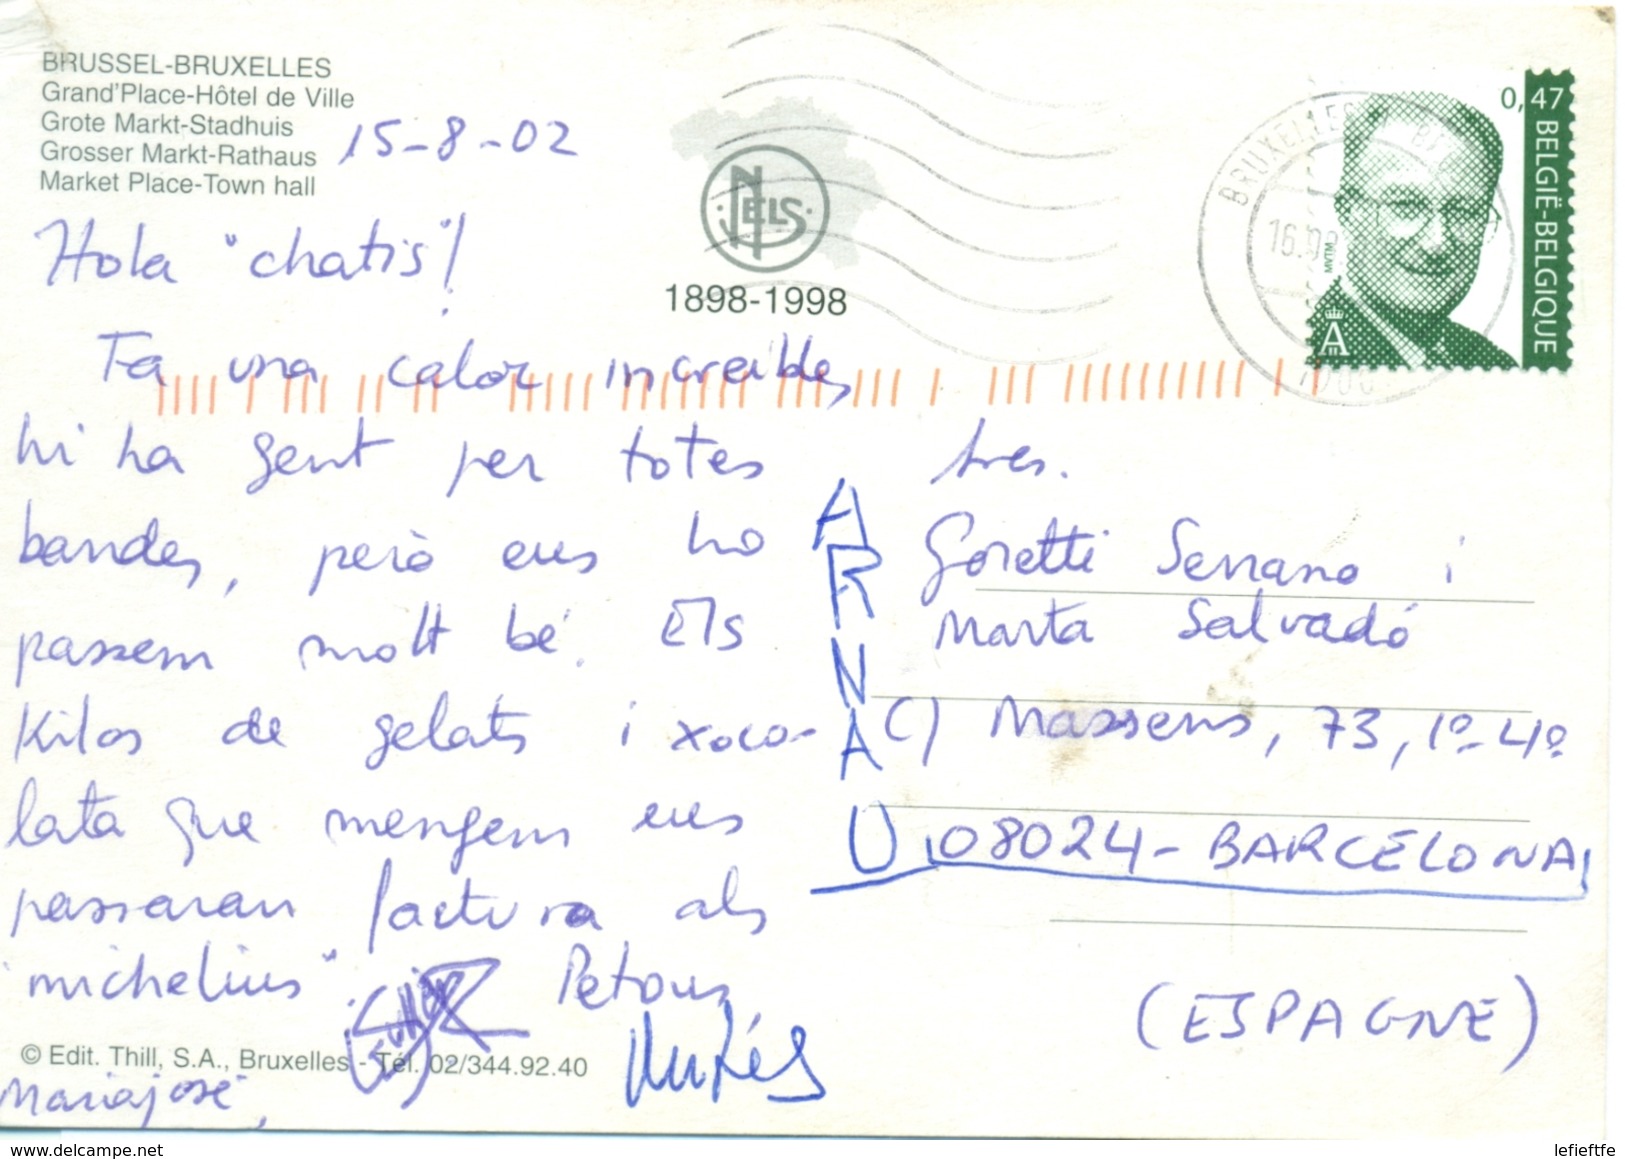 BRUSSEL-BRUXELLES
Grand'Place-Hôtel de Ville
Grote Markt-Stadhuis
Grosser Markt-Rathaus
Market Place-Town hall
15-8-02
NELS
1898-1998
BRUXELLES
16.08
1000
0,47
BELGIË-BELGIQUE
MVTM
A
Hola "chatis"!
Fa una calor increïble,
hi ha gent per totes
bandes, però ens ho
passem molt bé. Els
Kilos de gelats i xoco-
lata que mengem ens
passaran factura als
"michelins".
Petons
Mariajosé,
ARNAU
tres.
Goretti Serrano i
Marta Salvadó
C/ Massens, 73, 1º-4º
08024-BARCELONA
(ESPAGNE)
© Edit. Thill, S.A., Bruxelles - Tél. 02/344.92.40
www.delcampe.net
lefieftfe